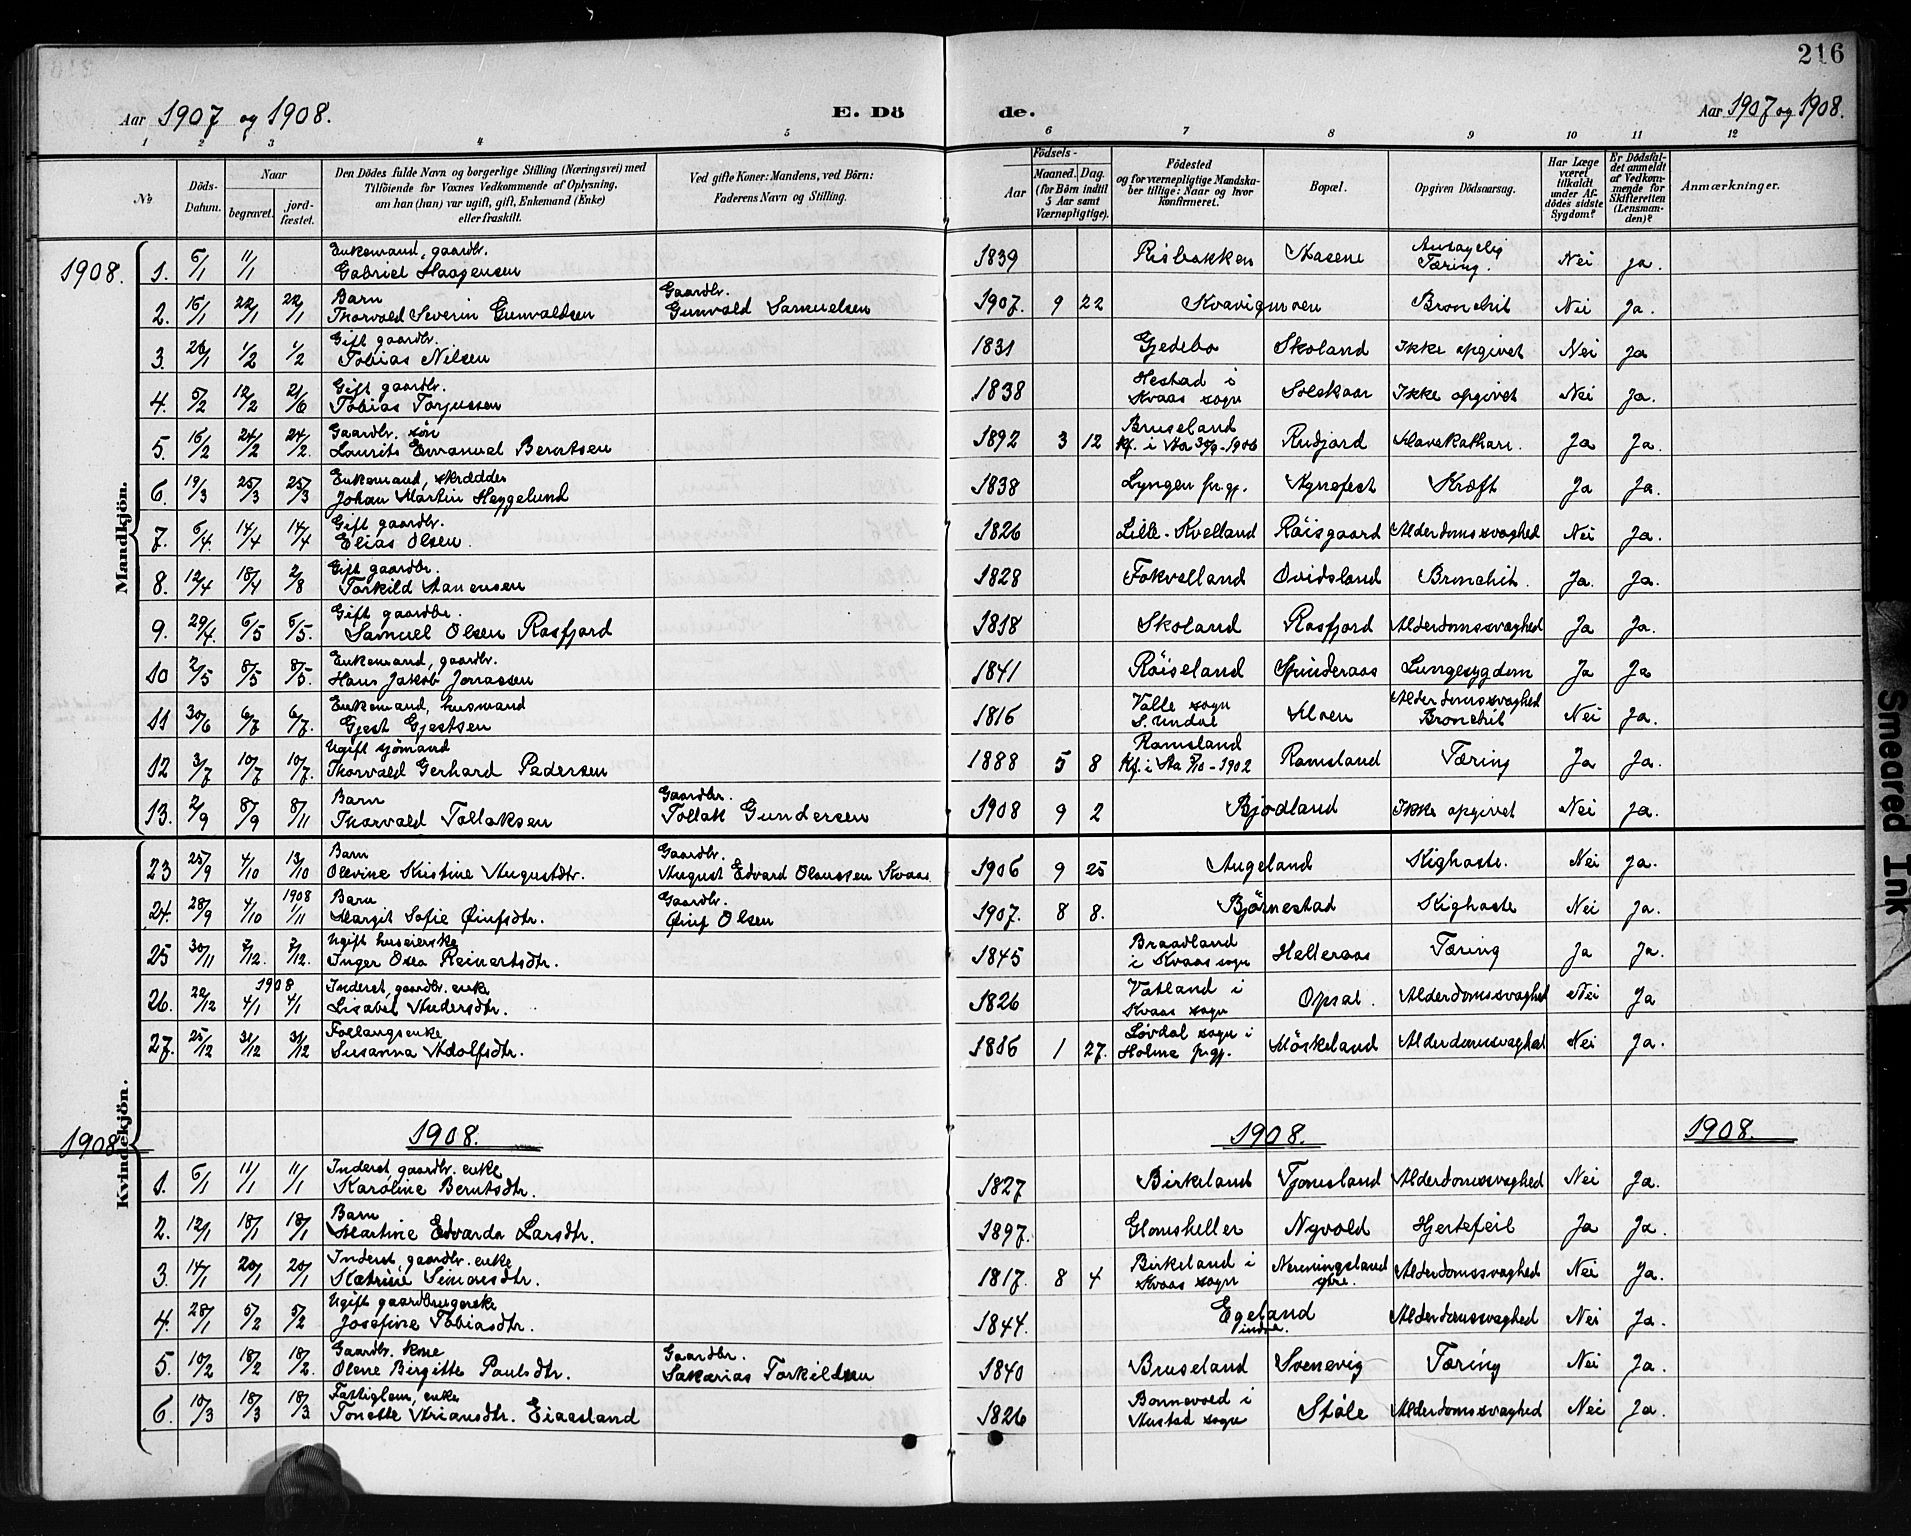 216
Aar 1907 og 1908. E. Dö de. Aar 1907 og 1908.
1 2 3 4 5 6 7 8 9 10 11 12
№ Döds-Datum. Naar begravet. jord-fæstet. Den Dödes fulde Navn og borgerlige Stilling (Næringsvei) med Tilföiende for Voxnes Vedkommende af Oplysning, om han (hun) var ugift, gift, Enkemand (Enke) eller fraskilt. Ved gifte Koner: Mandens, ved Börn: Faderens Navn og Stilling. Födsels- Aar Maaned. Dag. (for Börn indtil 5 Aar samt Værnepligtige). Födested og for værnepligtige Mandskaber tillige: Naar og hvor konfirmeret. Bopæl. Opgiven Dödsaarsag. Har Læge været tilkaldt under Afdödes sidste Sygdom? Er Dödsfaldet anmeldt af Vedkommende for Skifteretten (Lensmanden)? Anmærkninger.
1908.
Mandkjön.
1. 6/1 11/1 Enkemand, gaardbr. Gabriel Haagensen 1839 Risbakken Aasene Antagelig Tæring. Nei Ja.
2. 15/1 22/1 22/1 Barn Thorvald Severin Gunvaldsen Gaardbr. Gunvald Samuelsen 1907. 9 22 Kvavigmoen Bronchit Nei Ja.
3. 26/1 1/2 1/2 Gift gaardbr. Tobias Nilsen 1831 Gjedebo Skoland Ikke opgivet Nei Ja
4. 5/2 12/2 21/6 Gift gaardbr. Tobias Torjussen 1838 Hestad i Kvaas sogn Solskaar Ikke opgivet Nei Ja.
5. 16/2 24/2 24/2. Gaardbr. søn Laurits Emanuel Berntsen 1892 3 12 Bruseland Kf. i Aa 30/9-1906 Rudjord Mavekathar. Ja Ja.
6. 19/3 25/3 25/3 Enkemand, skrædder Johan Martin Heggelund 1838 Lyngen pr.gj. Agnefest Kræft Ja Ja.
7. 6/4. 14/4 14/4 Gift gaardbr. Elias Olsen. 1826 Lille-Kvelland Röisgaard Alderdomssvaghed Nei Ja.
8. 12/4 18/4 2/8 Gift gaardbr. Torkild Aanensen 1828 Fokvelland Ovidsland Bronchit. Ja. Ja.
9. 29/4. 6/5 6/5. Gift gaardbr. Samuel Olsen Rosfjord 1818 Skoland Rosfjord Alderdomssvaghed Ja Ja.
10 2/5 8/5 8/5. Enkemand, gaardbr. Hans Jakob Jonassen 1841 Röiseland Spinderaas Lungesygdom Ja Ja
11 30/6 6/7 6/7. Enkemand, husmand Gjest Gjestsen 1816 Valle sogn S. Undal Aloen Alderdomssvaghed Bronchit Nei Ja.
12 3/7 10/7 10/7. Ugift sjömand Thorvald Gerhard Pedersen 1888 5 8 Ramsland Kf. i Aa 5/10-1902 Ramsland Tæring Ja Ja.
13. 2/9 8/9 8/11 Barn Thorvald Tollaksen Gaardbr. Tollak Gundersen 1908 9 2 Bjodland Ikke opgivet Nei Ja.
Kvindekjön.
23 25/9 4/10 13/10 Barn Olevine Kristine Augustdtr. Gaardbr. August Edvard Olaussen Kvaas 1906 9 25 Augeland Kighoste. Nei Ja.
24. 28/9 4/10 1908 1/11 Barn Margit Sofie Öiufsdtr. Gaardbr. Öiuf Olsen 1907. 8 8. Björnestad Kighoste Nei Ja.
25 30/11 7/12. 7/12. Ugift huseierske Inger Osea Reinertsdtr. 1845 Braadland i Kvaas sogn Helleraas Tæring Ja Ja.
26. 22/12 1908 4/1 4/1 Inderst, gaardbr. enke Lisabet Andersdtr. 1826 Vatland i Kvaas sogn Opsal. Alderdomssvaghed Nei Ja
27. 25/12 31/12 31/12 Follaugsenke Susanna Adolfsdtr. 1816 1 27. Lövdal sogn i Holme pr.gj. Möskeland Alderdomssvaghed Nei Ja.
1908. 1908. 1908. 1908.
1. 6/1 11/1 11/1 Inderst gaardbr. enke Karoline Berntsdtr. 1827 Birkeland Tjomsland Alderdomssvaghed Nei Ja.
2. 12/1 18/1 18/1 Barn Martine Edvarda Larsdtr. 1897. Glomsheller Nyvold Hjertefeil Ja Ja.
3. 14/1 20/1 20/1 Inderst, gaardbr. enke Katrine Simonsdtr. 1817. 8 4 Birkeland i Kvaas sogn Nenningsland Alderdomssvaghed Nei Ja.
4. 28/1 5/2 5/2 Ugift gaardbrugerske Josefine Tobiasdtr. 1844. Egeland indre. Alderdomssvaghed Nei Ja.
5 10/2 18/2 18/2. Gaardbr. kone Olene Birgitte Paulsdtr. Gaardbr. Sakarias Torkildsen 1840 Bruseland Svenevig Tæring Nei Ja.
6. 10/3 18/3 18/3 Fattiglem, enke Tonette Ariansdtr. Eiaasland 1826 Bonnevold i Austad sogn Støle Alderdomssvaghed Nei Ja.
Smeared Ink